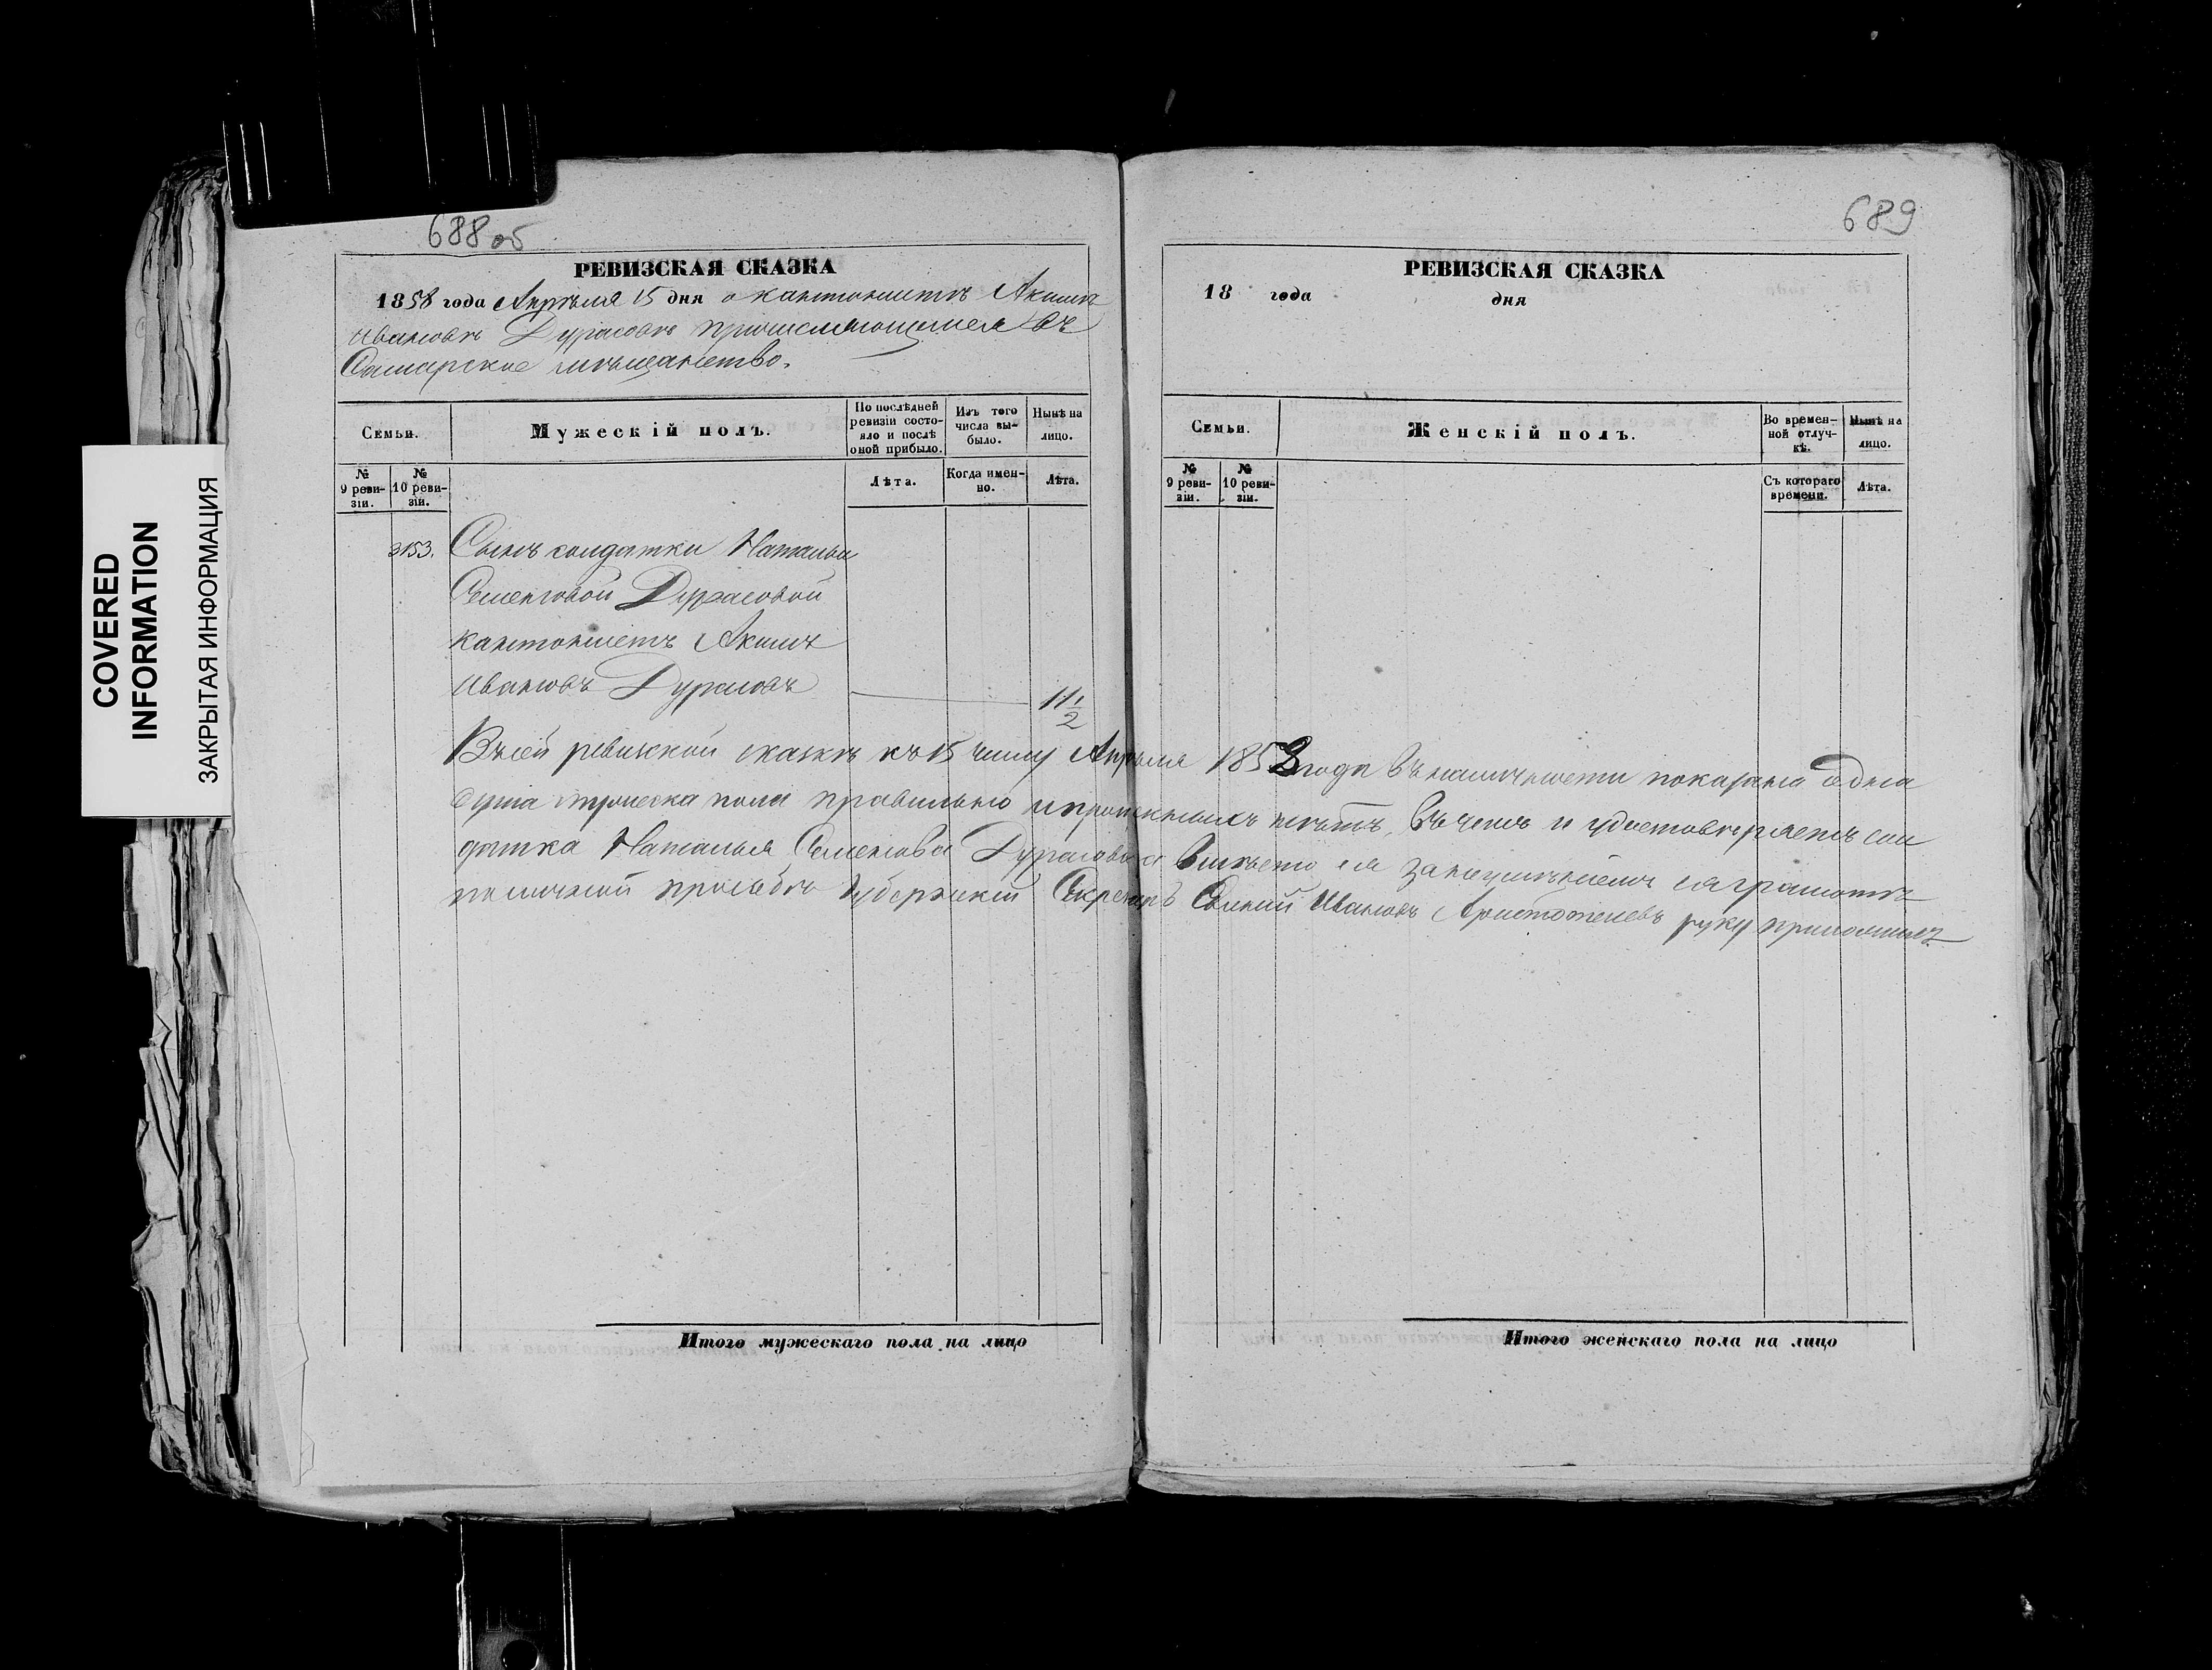 COVERED
INFORMATION
ЗАКРЫТАЯ ИНФОРМАЦИЯ
688 об
РЕВИЗСКАЯ СКАЗКА
1858 года Апрѣля 15 дня о кантонистѣ Акимѣ
Ивановѣ Дурасовѣ причисляющемся въ
Самарское мѣщанство.
Семьи.
Мужескій полъ.
По послѣдней ревизіи состояло и послѣ оной прибыло.
Изъ того числа выбыло.
Нынѣ на лицо.
№ 9 ревизіи.
№ 10 ревизіи.
Лѣта.
Когда именно.
Лѣта.
3153. Сынъ солдатки Натальи
Семеновой Дурасовой
кантонистъ Акимъ
Ивановъ Дурасовъ 11 1/2
Итого мужескаго пола на лицо
689
РЕВИЗСКАЯ СКАЗКА
18 года дня
Семьи.
Женскій полъ.
Во временной отлучкѣ.
Нынѣ на лицо.
№ 9 ревизіи.
№ 10 ревизіи.
Съ котораго времени.
Лѣта.
Въ сей ревизской сказкѣ къ 15 числу Апрѣля 1858 года въ наличности показана одна
душа мужеска пола правильно и прописныхъ нѣтъ, въ чемъ и удостовѣряетъ сол
датка Наталья Семенова Дурасова а вмѣсто ея за неумѣніемъ грамотѣ
по личной просьбѣ Губернскій Секретарь Ивановъ руку приложилъ
Итого женскаго пола на лицо